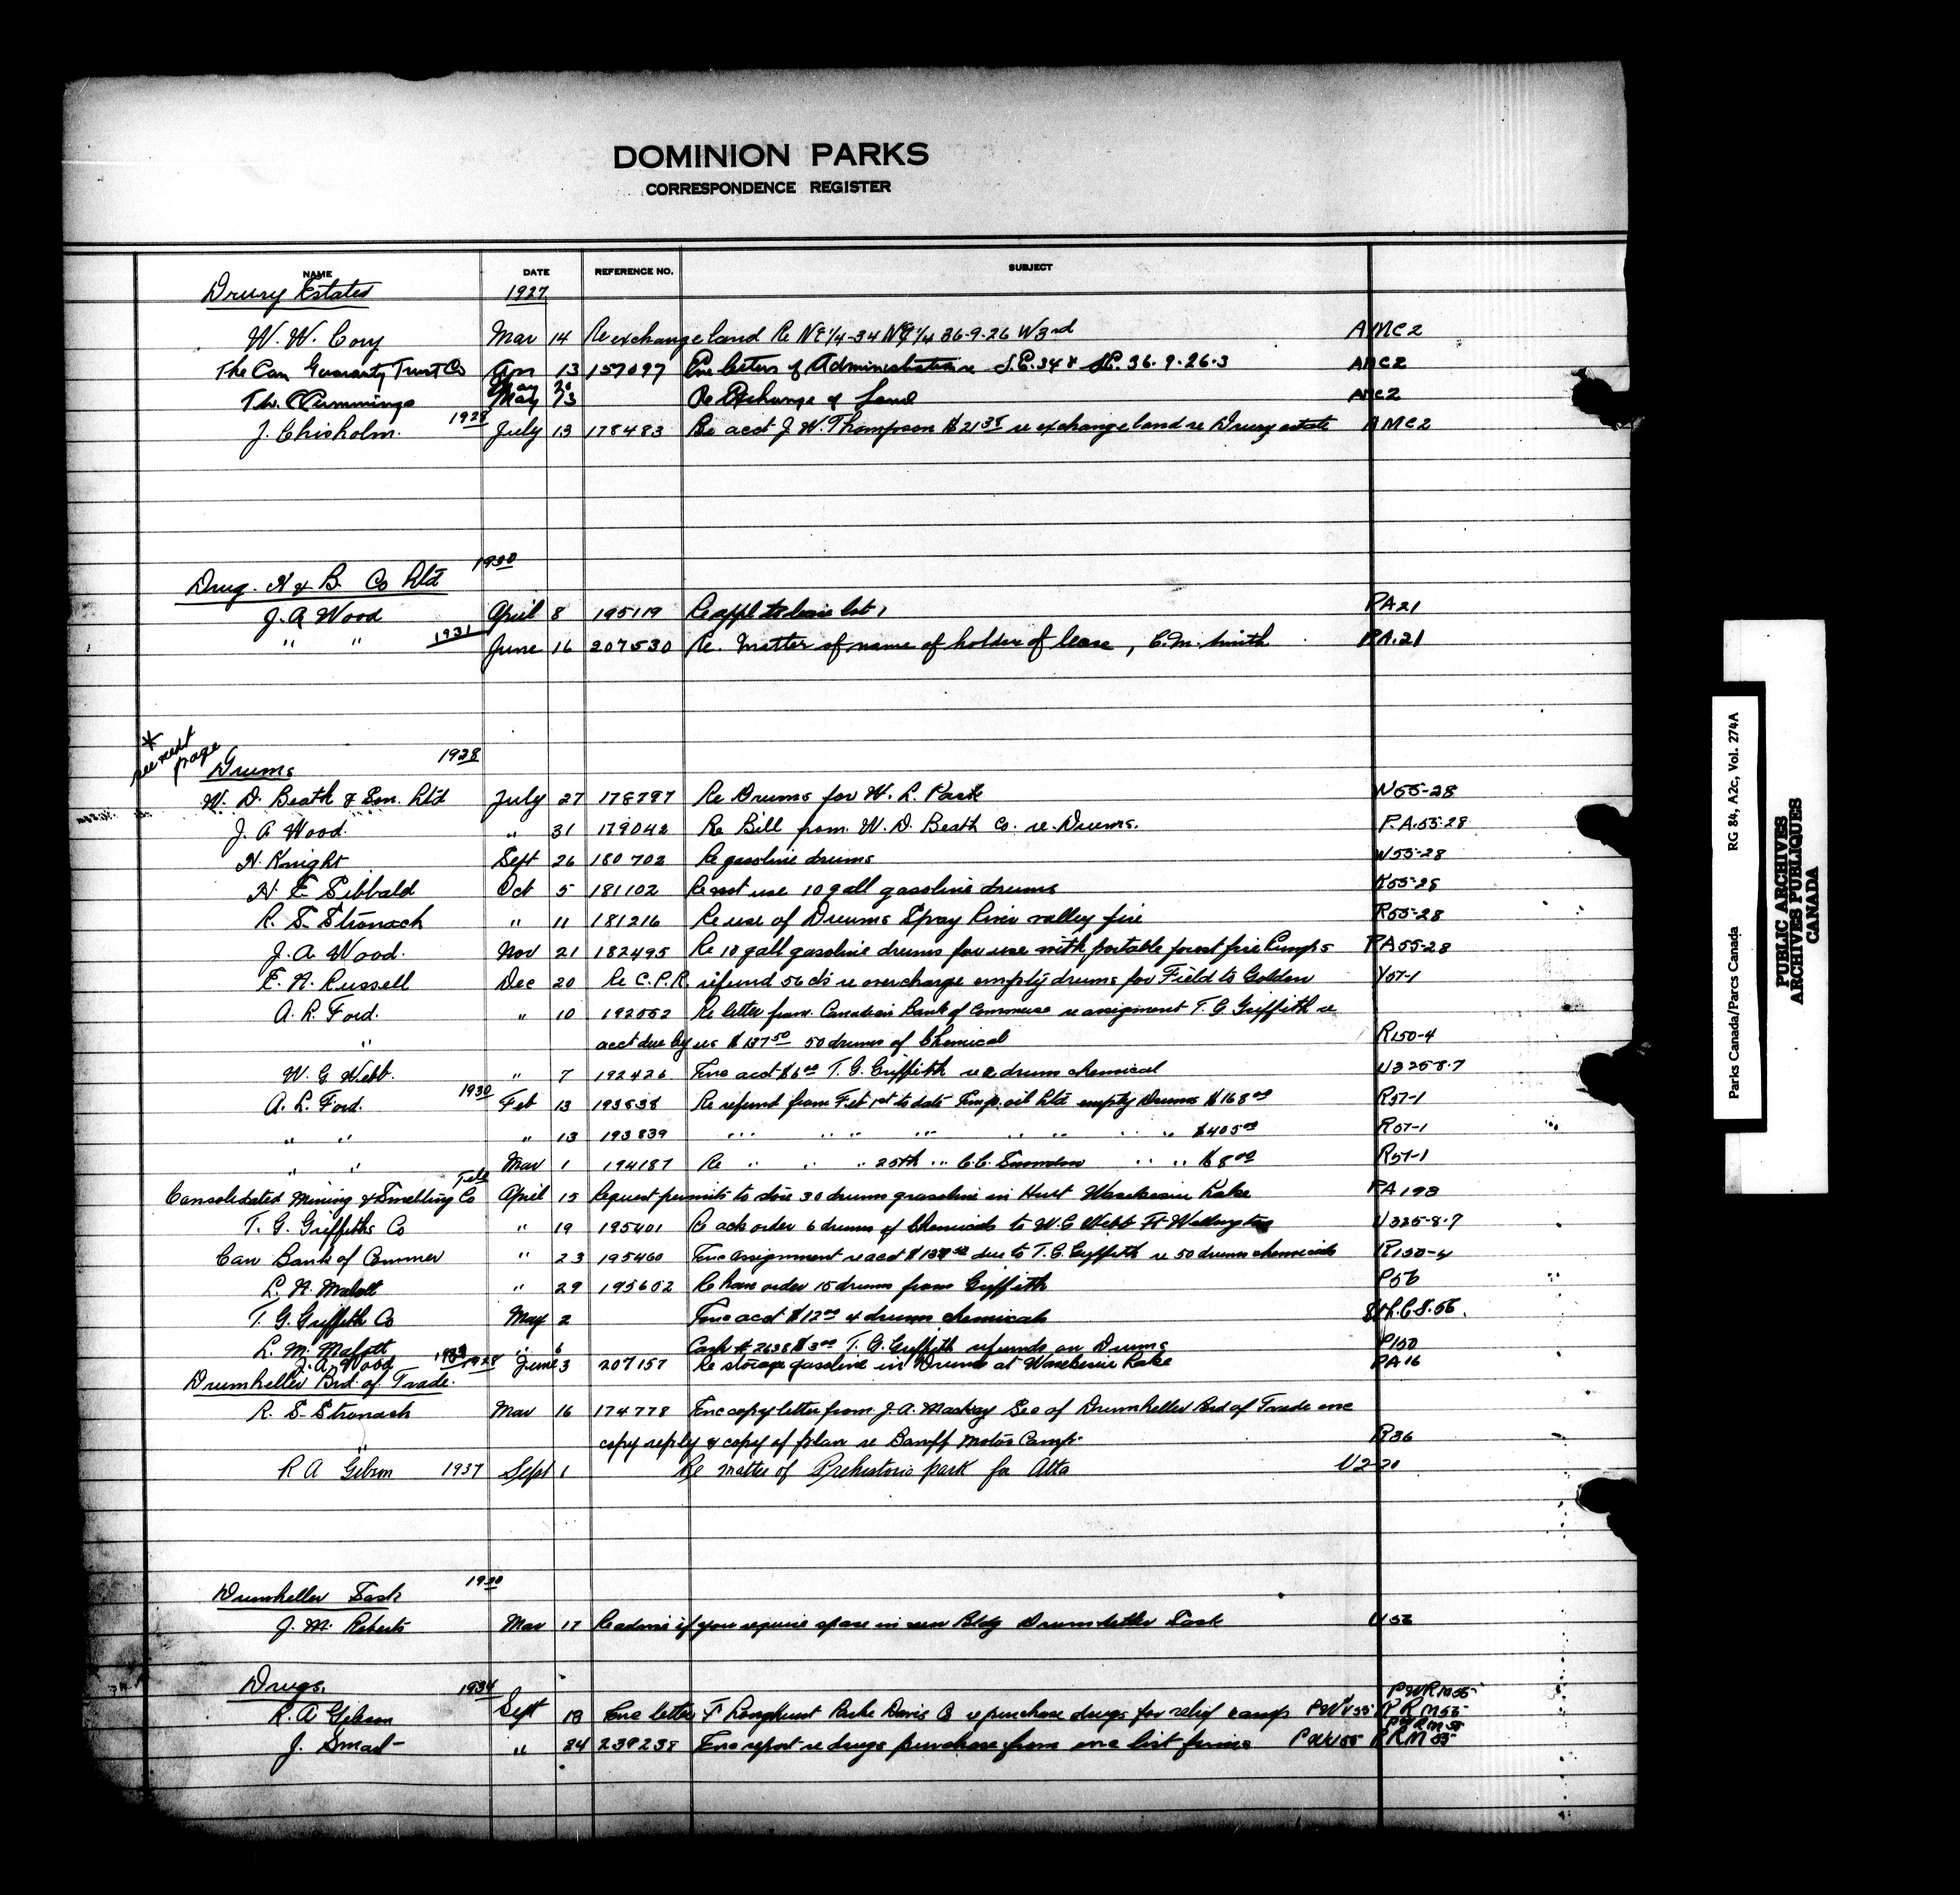 DOMINION PARKS
CORRESPONDENCE REGISTER
NAME DATE REFERENCE NO. SUBJECT
Drury Estates 1927
W. W. Cory Mar 14 Re exchange land Re NE 1/4-34 1/4 36-9-26 W3rd AMC2
The Can Guaranty Trust Co Apr 13 157097 Enc letters of Administration re S.E.34 & SE.36.9.26.3 AMC2
May 20
T.W. Cummings May 23 Re Exchange of Land AMC2
J. Chisholm. 1928 July 13 178483 Re acct J. W. Thompson re exchange land re Drury estate AMC2
1930
Drug. N & B. Co Ltd
J. A Wood April 8 195119 Re appl to lease lot 1 PA21
" " 1931 June 16 207530 Re. Matter of name of holder of lease, C.M. Smith PA.21
* see next page
Drums 1928
W. D. Beath & Son. Ltd July 27 178797 Re Drums for W. L. Park W55-28
J. A Wood. " 31 179042 Re Bill from W. D. Beath Co. re Drums. P.A.55-28
H. Knight Sept 26 180702 Re gasoline drums W55-28
H E Sibbald Oct 5 181102 Re not use 10 gall gasoline drums K55-28
R. S. Stronach " 11 181216 Re use of Drums Spray River valley fire R55-28
J. A. Wood. Nov 21 182495 Re 10 gall gasoline drums for use with portable forest fire Pumps PA55-28
E. N. Russell Dec 20 Re C.P.R. refund 56 cts re overcharge empty drums for Field to Golden Y57-1
A. L. Ford. " 10 192552 Re letter from Canadian Bank of Commerce re assignment T. G Griffith re
" acct due by us $137.50 50 drums of Chemical R150-4
W. G Webb. " 7 192426 Enc acct $6.00 T. G. Griffith re drum chemical U325-8-7
A. L. Ford. 1930 Feb 13 193838 Re refund from Feb 1st to date Imp. oil Ltd empty Drums $168.00 R57-1
" " " 13 193839 " " " " " " " " $405.00 R57-1
" " Mar 1 194187 Re " " " 25th " C.C. Snowdon " " " $8.00 R57-1
Consolidated Mining & Smelting Co Tele April 15 Request permits to store 30 drums gasoline in Hut Waskesiu Lake PA198
T. G. Griffiths Co " 19 195401 Re ack order 6 drums of Chemicals to W. G Webb Ft Wellington U325-8-7
Can Bank of Commer " 23 195460 Enc assignment re acct $137.50 due to T. G. Griffith re 50 drums chemicals R150-4
L. N. Malott " 29 195602 Re have order 15 drums from Griffith P56
T. G Griffith Co May 2 Enc acct $12.00 4 drums chemicals
L. M. Malott " 6 Cash # 2638 $3.00 T. G. Griffith refunds on Drums P150
J. A. Wood June 3 207157 Re storage gasoline in Drums at Waskesiu Lake PA16
Drumheller Brd. of Trade. 1928
R. S. Stronach Mar 16 174778 Enc copy letter from J. A. Mackay Sec of Drumheller Brd of Trade enc
" copy reply & copy of plan re Banff Motor Camp. R36
R A Gibson 1937 Sept 1 Re matter of Prehistoric park for Alta U2-20
Drumheller Sask 1930
J. M. Roberts Mar 17 Re advise if you require space in new Bldg Drumheller Sask U53
Drugs. 1934 PWRM55
R. A Gibson Sept 18 Enc letter F Longhurst Parke Davis Co re purchase drugs for relief camps
J. Smart " 24 239238 Enc report re drugs purchase from enc list firms
Parks Canada/Parcs Canada RG 84, A2c, Vol. 274A
PUBLIC ARCHIVES
ARCHIVES PUBLIQUES
CANADA